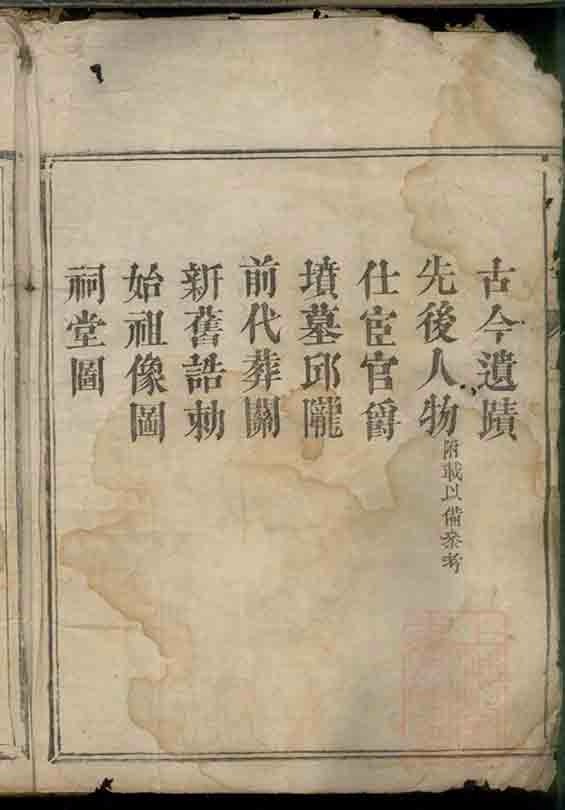 古今遺蹟
先後人物附載以備叅考
仕宦官爵
墳墓邱隴
前代葬關
新舊誥勅
始祖像圖
祠堂圖